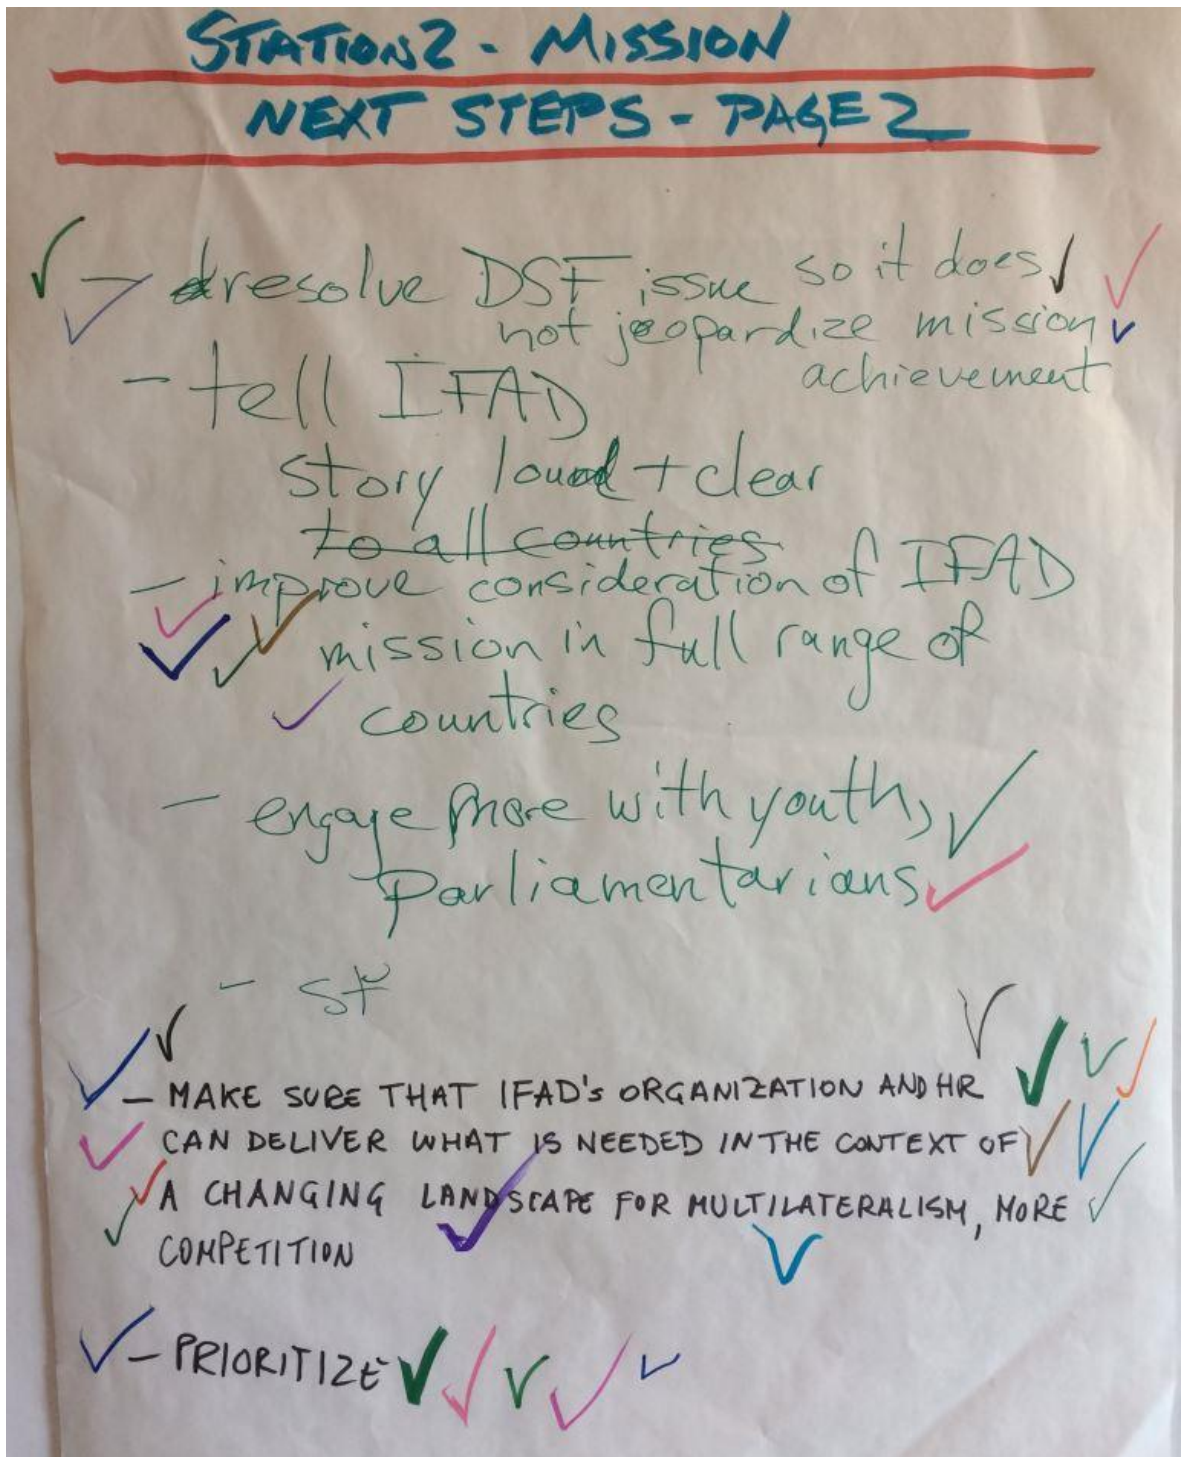 STATION 2 - MISSION
NEXT STEPS - PAGE 2
- resolve DSF issue so it does
not jeopardize mission
achievement
- tell IFAD
story loud + clear
to all countries
- improve consideration of IFAD
mission in full range of
countries
- engage more with youth,
parliamentarians
- st
- MAKE SURE THAT IFAD'S ORGANIZATION AND HR
CAN DELIVER WHAT IS NEEDED IN THE CONTEXT OF
A CHANGING LANDSCAPE FOR MULTILATERALISM, MORE
COMPETITION
- PRIORITIZE